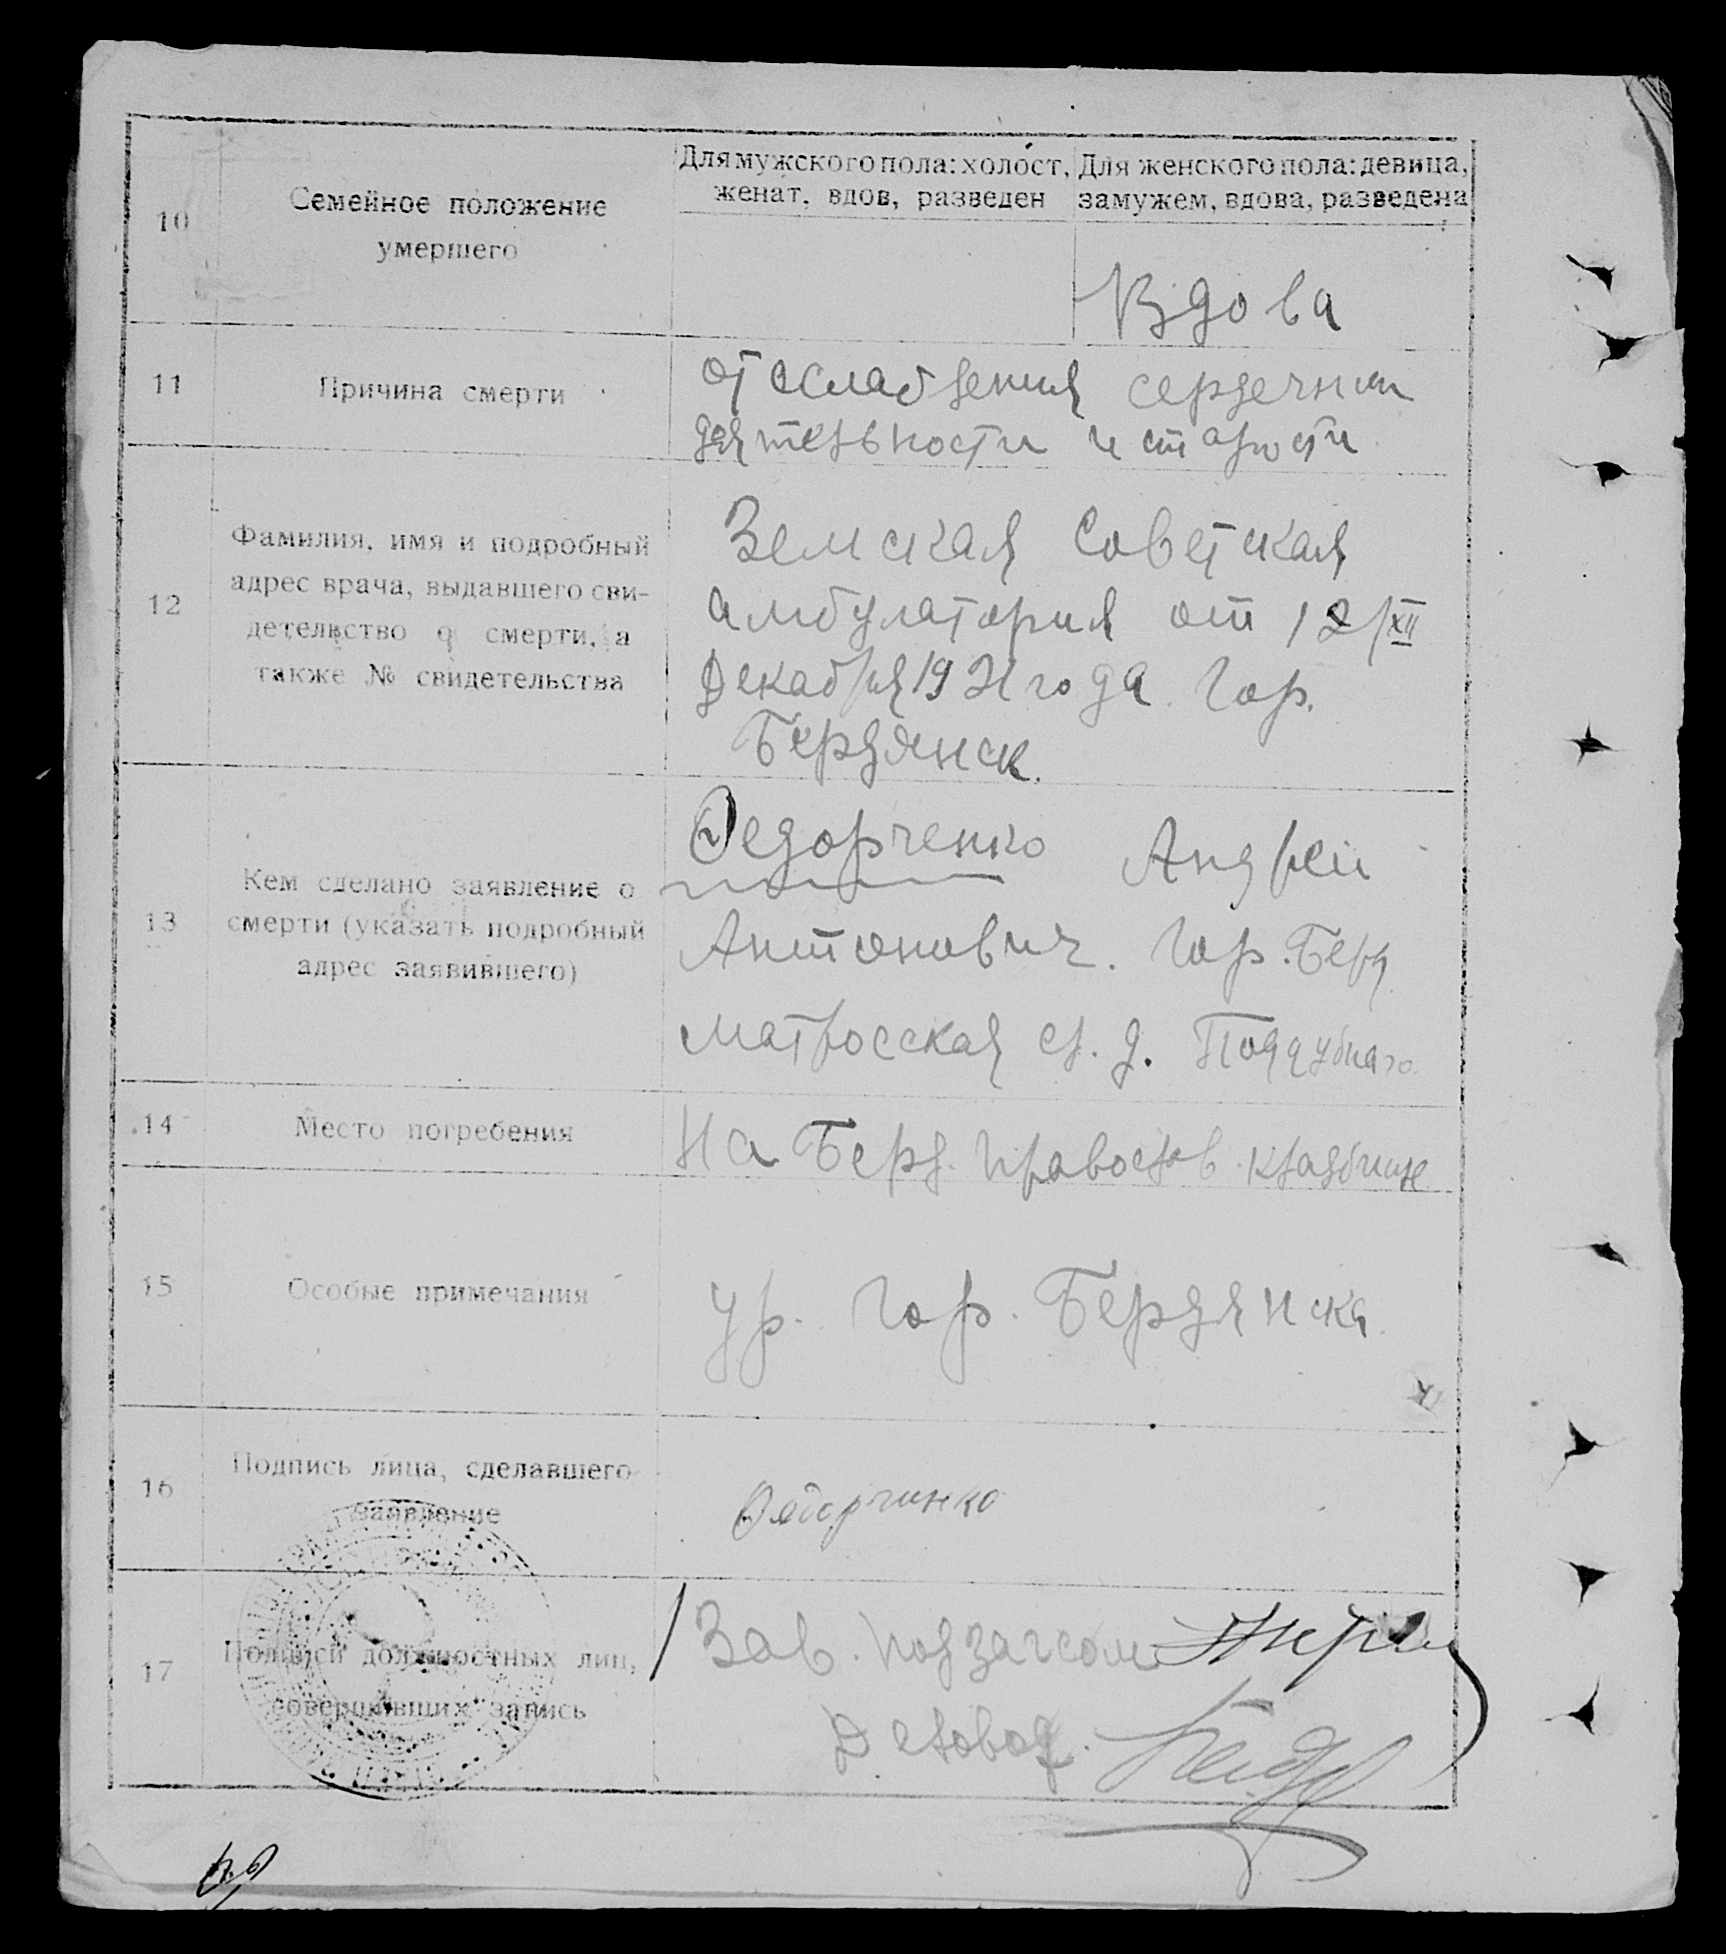 10
Семейное положение
умершего
Для мужского пола: холост,
женат, вдов, разведен
Для женского пола: девица,
замужем, вдова, разведена
Вдова
11
Причина смерти
от ослабдения сердечнои
деятельности и старости
12
Фамилия, имя и подробный
адрес врача, выдавшего сви-
детельство о смерти, а
также № свидетельства
Земская Советская
амбулатория от 12/XII
Декабря 1921 года. Гор.
Бердянск.
13
Кем сделано заявление о
смерти (указать подробный
адрес заявившего)
Федорченко Андрей
Антонович. Гор. Берд.
Матросская сл. д. Поддубнаго.
14
Место погребения
На Берд. православ. кладбище
15
Особые примечания
ур. гор. Бердянска.
16
Подпись лица, сделавшего
заявление
Федорченко
17
Подписи должностных лиц,
совершивших запись
Зав. подзагсом
Деловод.